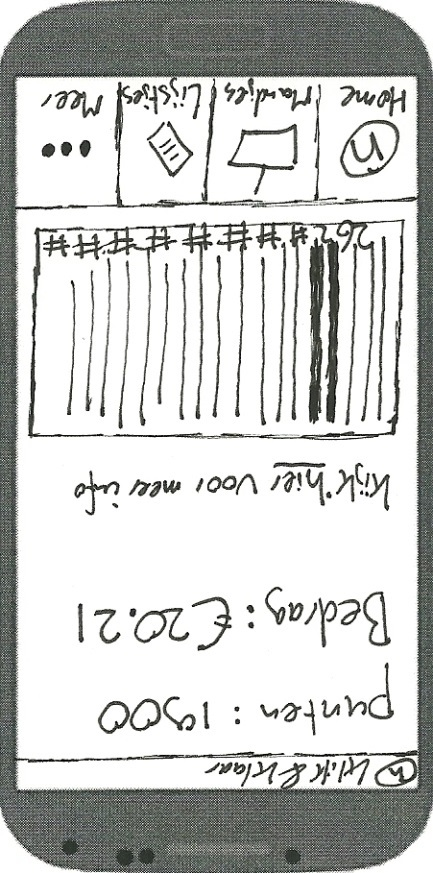 n Klik & Klaar
punten :
Bedrag : €20.21
Kijk hier voor meer info
262########
n
Home Mandjes Lijstjes Meer